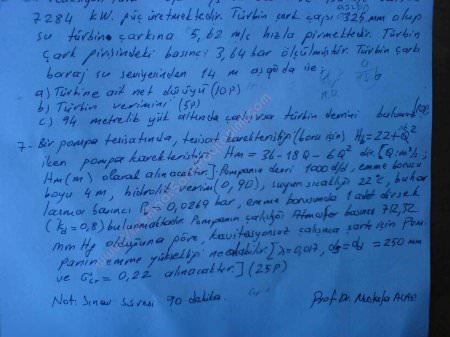 7284 kW. güç üretmektedir. Türbin çark çapı 325 mm olup
su türbin çarkına 5,62 m/s hızla girmektedir. Türbin
çark girişindeki basıncı 3,64 bar ölçülmüştür. Türbin çarkı
baraj su seviyesinden 14 m aşağıda ise;
a) Türbine ait net düşüyü (10P)
b) Türbin verimini (5P)
c) 94 metrelik yük altında çalışırsa türbin devrini bulunuz (10P)
7- Bir pompa tesisatında, tesisat karekteristiği (boru için) Hb=22+Q²
iken pompa karekteristiği Hm=36-18Q-6Q² dir. [Q:m³/s;
Hm(m) olarak alınacaktır.] Pompanın devri 1000 d/d, emme borusu
boyu 4m, hidrolik verim (0,90), suyun sıcaklığı 22°C, buhar
basıncı = 0,0269 bar, emme borusunda 1 adet dirsek
(=0,8) bulunmaktadır. Pompanın çalıştığı Atmosfer basıncı 712,32
mm Hg olduğuna göre, kavitasyonsuz çalışma şartı için Pom-
panın emme yüksekliği ne olabilir. [λ=0,017, = =250 mm
ve σcr = 0,22 alınacaktır.] (25P)
Not: Sınav Süresi 90 dakika. Prof. Dr. Mustafa